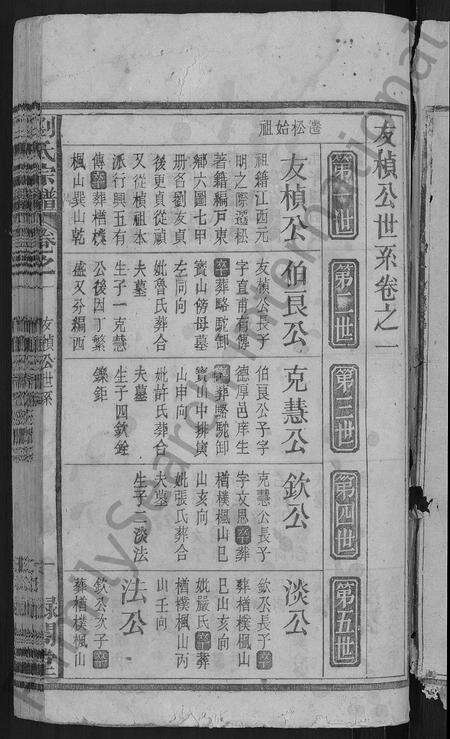 友楨公世系卷之一
遷松始祖
第一世
友楨公
祖籍江西元
明之際遷松
著籍編戸東
鄉六圖七甲
册名劉友貞
後更貞從禎
又從楨禎本
派行興五有
傳 葬楷樸
楓山巽山乾
第二世
伯良公
友楨公長子
字直甫有傳
葬略駝卸
寳山傍母墓
左同向
妣魯氏葬合
夫墓
生子一克慧
公後因丁繁
盛又分編西
第三世
克慧公
伯良公子字
德厚邑庠生
葬略駝卸
寳山中排寅
山申向
妣許氏葬合
夫墓
生子四欽銓
鑠鉅
第四世
欽公
克慧公長子
字文恩 葬
楷樸楓山巳
山亥向
妣張氏葬合
夫墓
生子二淡法
第五世
淡公
欽公長子
葬楷樸楓山
巳山亥向
妣嚴氏 葬
楷樸楓山丙
山壬向
法公
欽公次子
葬楷樸楓山
劉氏宗譜 卷之一
友楨公世系
一
FamilySearch International